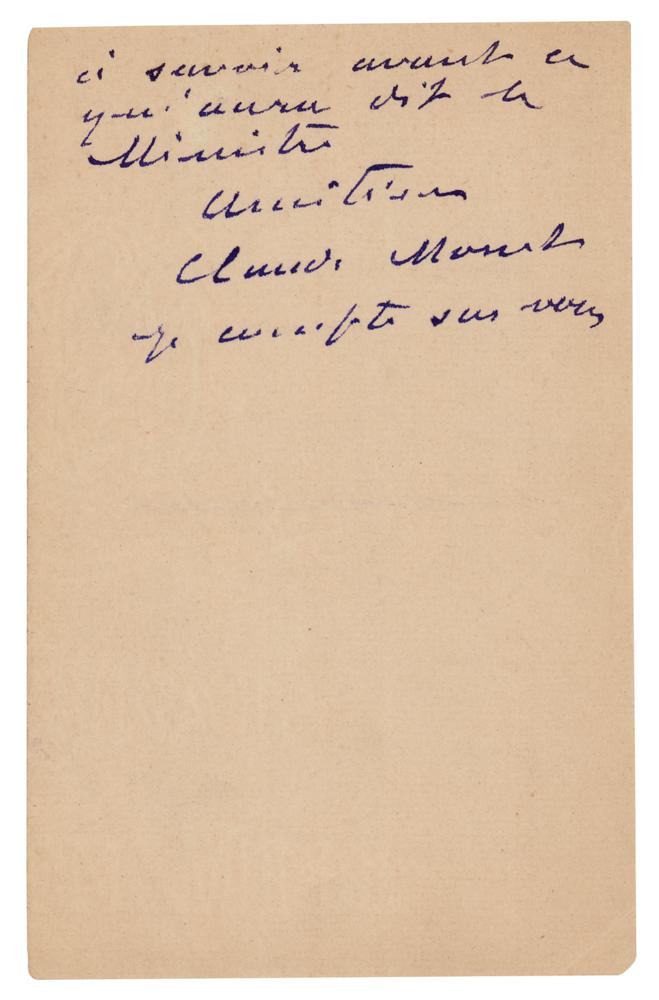 à savoir avant ce
qu'aura dit le
Ministre
Amitiés
Claude Monet
je compte sur vous